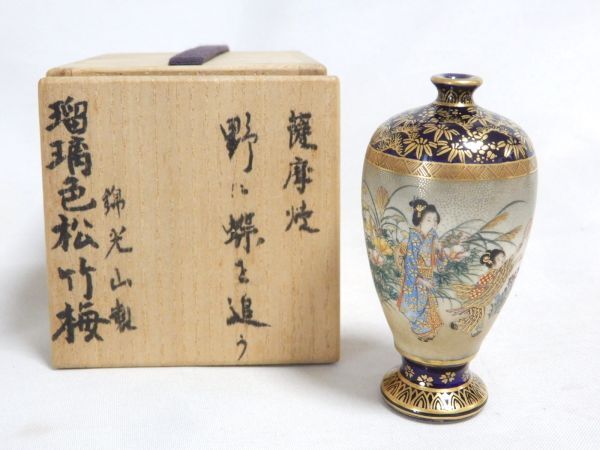 薩摩焼
野に蝶を追う
錦光山製
瑠璃色松竹梅